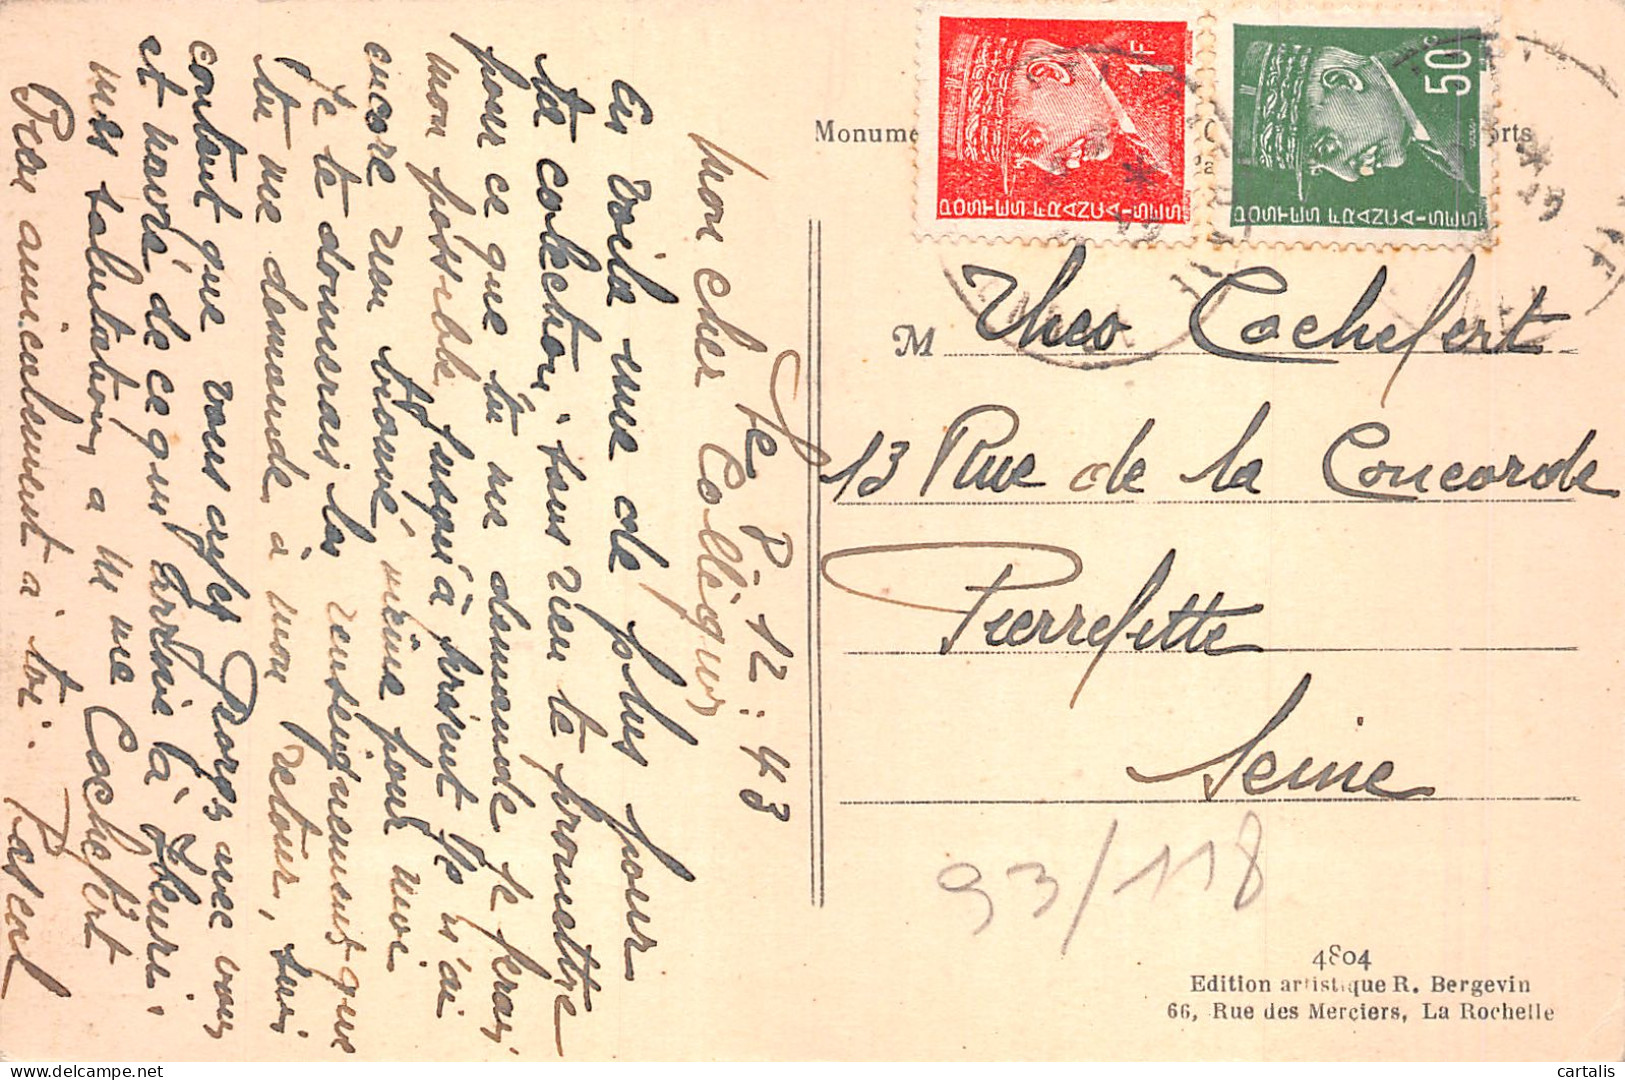 Le 8-12-43
Mon cher Collègue
En voila une de plus pour
ta colection, sans rien te promettre
pour ce que tu me demande je ferai
mon possible. Jusqu'à présent je n'ai
encore rien trouvé même pour moi
Je te donnerai les renseignements que
tu me demande à mon retour, suis
contant que vous ayez Progr avec vous
et navré de ce qui arrive à Fleuri.
mes salutation a Mme Cachefert
Bien amicalement à toi. Pascal
Monume
orts
1F
POSTES FRANÇAISES
50c
POSTES FRANÇAISES
M Theo Cachefert
13 Rue de la Concorde
Pierrefitte
Seine
93/118
4804
Edition artistique R. Bergevin
66, Rue des Merciers, La Rochelle
cartalis